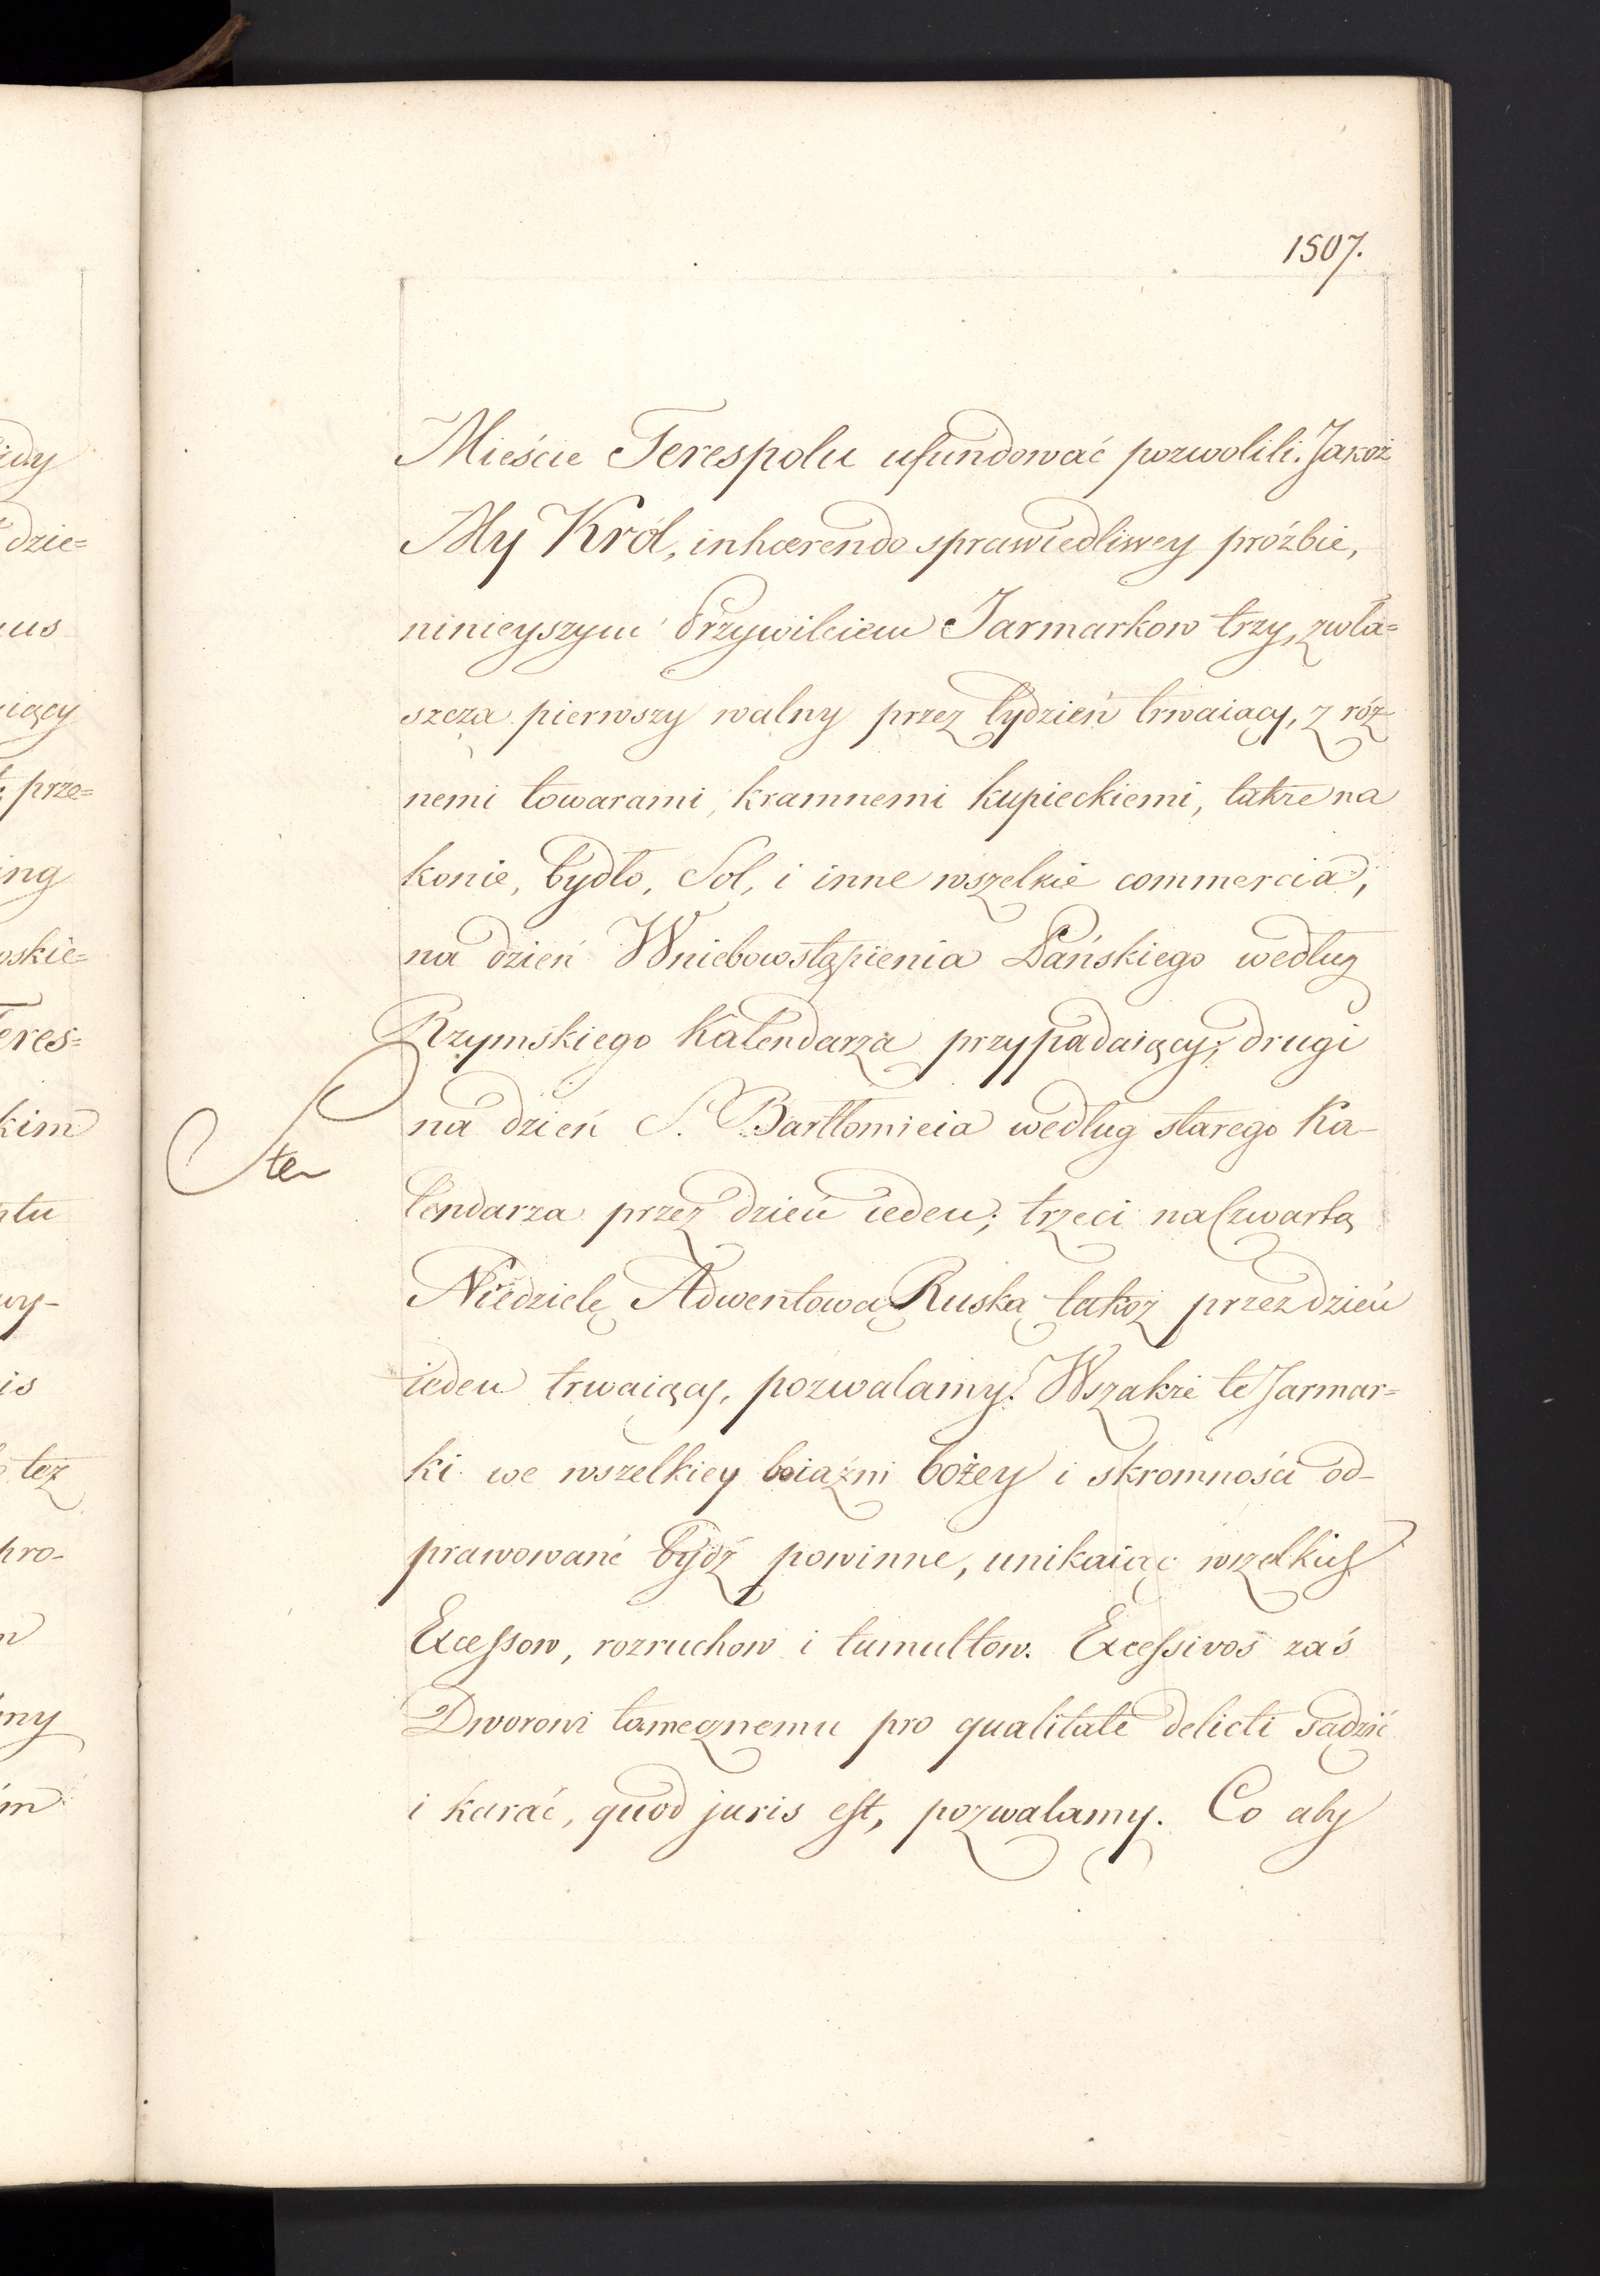 1507.
Mieście Terespolu ufundować pozwolili. Jakoż
My Król, inhærendo sprawiedliwey próźbie,
ninieyszym Przywileiem Jarmarkow trzy, zwła=
szcza pierwszy walny przez tydzień trwaiący, z róż
nemi towarami, kramnemi kupieckiemi, także na
konie, bydło, Sol, i inne wszelkie commercia,
na dzień Wniebowstąpienia Pańskiego według
Rzymskiego Kalendarza przypadaiący; drugi
na dzień S. Bartłomieia według starego Ka-
lendarza przez dzień ieden; trzeci na Czwartą
Niedzielę Adwentową Ruską takoż przez dzień
ieden trwaiący, pozwalamy. Wszakże te Jarmar=
ki we wszelkiey boiaźni bożey i skromności od-
prawowane bydź powinne, unikaiąc wszelkich
Excessow, rozruchow i tumultow. Excessivos zaś
Dworowi tamecznemu pro qualitate delicti sądzić
i karać, quod juris est, pozwalamy. Co aby
idy
dzie=
us
iący
prze=
ing
oskie=
eres=
kim
tu
wy-
is
też
pro-
ny